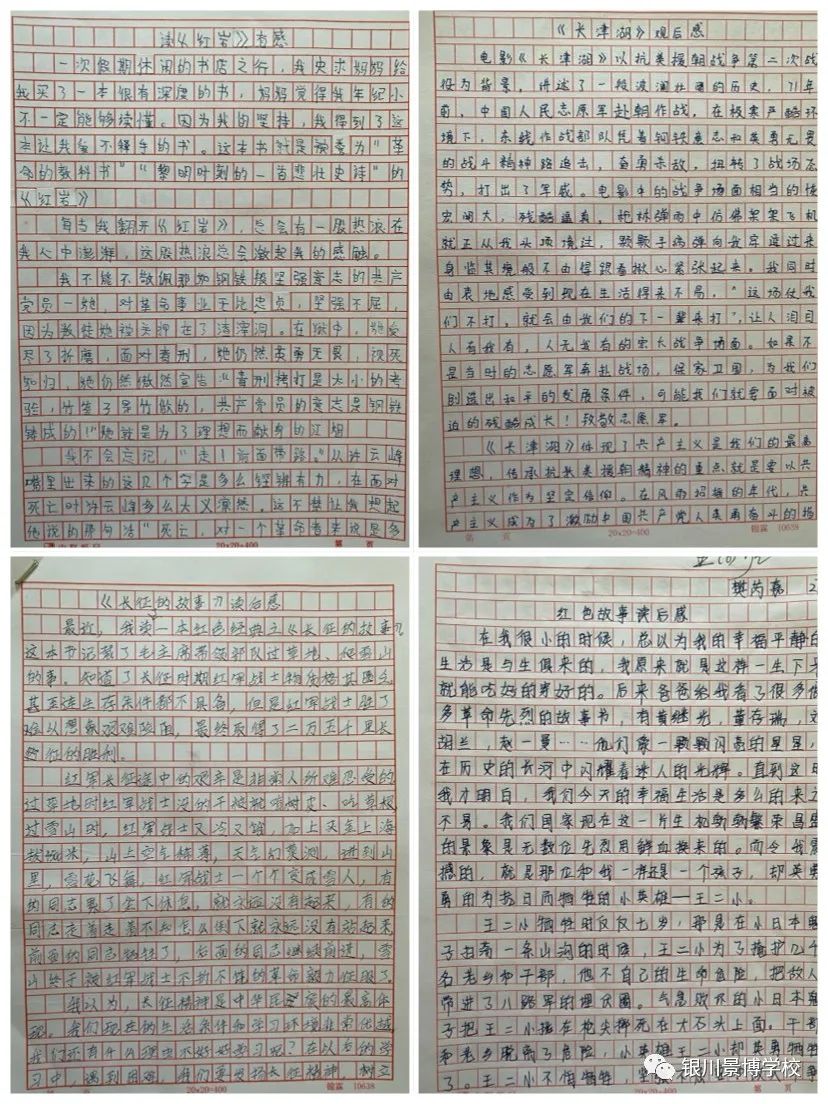 读《红岩》有感
一次假期休闲的书店之行，我央求妈妈给
我买了一本很有深度的书，妈妈觉得我年纪小
不一定能够读懂。因为我的坚持，我得到了这
本让我爱不释手的书。这本书就是被誉为“革
命的教科书”“黎明时刻的一首悲壮史诗”的
《红岩》
每当我翻开《红岩》，总会有一股热浪在
我心中澎湃，这股热浪总会激起我的感触。
我不能不敬佩那如钢铁般坚强意志的共产
党员—她，对革命事业无比忠贞，坚强不屈，
因为叛徒她被关押在了渣滓洞。在狱中，她受
尽了折磨，面对毒刑，她仍然英勇无畏，视死
如归，她仍然傲然宣告“毒刑拷打是太小的考
验，竹签子是竹做的，共产党员的意志是钢铁
铸成的！”她就是为了理想而献身的江姐
我不会忘记，“走！前面带路。”从许云峰
嘴里出来的这几个字是多么铿锵有力，在面对
死亡时许云峰多么大义凛然。这不禁让我想起
他说的那句话“死亡，对一个革命者来说是多
20x20=400
第 页
《长津湖》观后感
电影《长津湖》以抗美援朝战争第二次战
役为背景，讲述了一段波澜壮阔的历史，71年
前，中国人民志愿军赴朝作战，在极寒严酷环
境下，东线作战部队凭着钢铁意志和英勇无畏
的战斗精神路追击，奋勇杀敌，扭转了战场态
势，打出了军威。电影中的战争场面相当的恢
宏阔大，残酷逼真，枪林弹雨中仿佛架架飞机
就正从我头顶境过，颗颗子弹向我穿通过来
身临其境般不由得跟着揪心紧张起来。我同时
由衷地感受到现在生活得来不易，“这场仗我
们不打，就会由我们的下一辈来打”，让人泪目
人有我有，人无我有的宏大战争场面。如果不
是当时的志愿军奔赴战场，保家卫国，为我们
创造出和平的发展条件，可能我们就要面对被
迫的残酷成长！致敬志愿军。
《长津湖》体现了共产主义是我们的最高
理想，传承抗美援朝精神的重点就是要以共
产主义作为坚定信仰。在风雨招摇的年代，共
产主义成为了激励中国共产党人英勇奋斗的指
第 页
20x20=400
翰霖 10638
《长征的故事》读后感
最近，我读一本红色经典主《长征的故事》
这本书记录了毛主席带领部队过草地、爬雪山
的事。知道了长征时期红军战士物质极其匮乏
甚至连生存条件都不具备，但是红军战士胜了
难以想象艰难险阻，最终取得了二万五千里长
长征的胜利。
红军长征途中的艰辛是非常人所难忍受的
过草地时红军战士没的干粮就啃树皮、吃草根
过雪山时，红军战士又冷又饿，加上天气上海
拔极冰，山上空气稀薄，天气幻莫测，进到山
里，雪花飞舞，红军战士一个个变成雪人，有
的同志累了坐下休息，就永远没有起来，有的
同志走着走着不知怎么倒下就永远没有站起来
前面的同志牺牲了，后面的同志继续前进，雪
山终于被红军战士不折不饶的革命毅力征服了。
我以为，长征精神是中华民族爱的最高体
现。我们现在的生活条件和学习环境非常优越
我们还有什么理由不好好学习呢？在以后的学
习中，遇到困难，我们要发扬长征精神，树立
20x20=400
翰霖 10638
樊芮嘉
红色故事读后感
在我很小的时候，总以为我的幸福平静的
生活是与生俱来的，我原来就是这样一生下来
就能吃好的穿好的。后来爸爸给我看了很多很
多革命先烈的故事书，有黄继光，董存瑞，刘
胡兰，赵一曼……他们像一颗颗闪亮的星星，
在历史的长河中闪耀着迷人的光辉。直到这时
我才明白，我们今天的幸福生活是多么的来之
不易。我们国家现在这一片生机勃勃繁荣昌盛
的景象是无数位先烈用鲜血换来的。而令我震
撼的，就是那位和我一样还是一个孩子，却英勇
勇的为抗日而牺牲的小英雄—王二小。
王二小牺牲时仅仅七岁，那是在小日本鬼
子扫荡一条山沟的时候，王二小为了掩护几千
名老乡和干部，他不自己的生命危险，把敌人
带进了八路军的埋伏圈。气急败坏的小日本鬼
子把王二小挑在枪尖摔死在大石头上面。干部
和老乡脱离了危险，小英雄王二小却英勇牺牲
了。王二小不怕牺牲，
银川景博学校